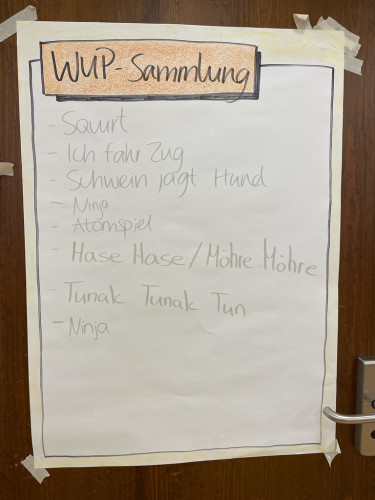 WUP-Sammlung
- Squirt
- Ich fahr Zug
- Schwein jagt Hund
- Ninja
- Atomspiel
- Hase Hase / Möhre Möhre
- Tunak Tunak Tun
- Ninja